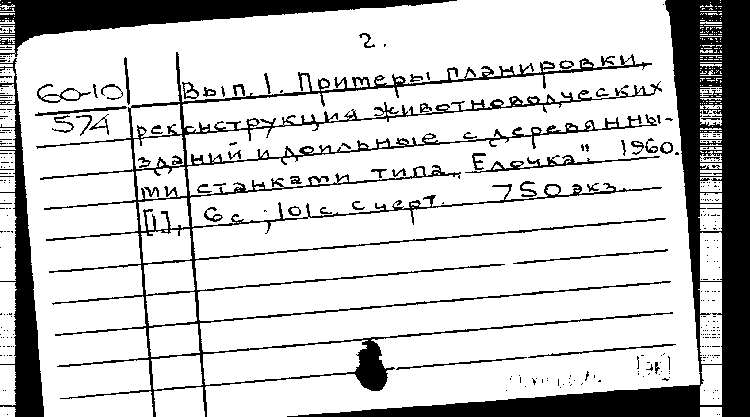 2.
60-10 Вып. 1. Примеры планировки,
574 реконструкция животноводческих
зданий и доильные с деревянны-
ми станками типа „Елочка". 1960.
[1], 6 с ; 101 с. с черт. 750 экз.